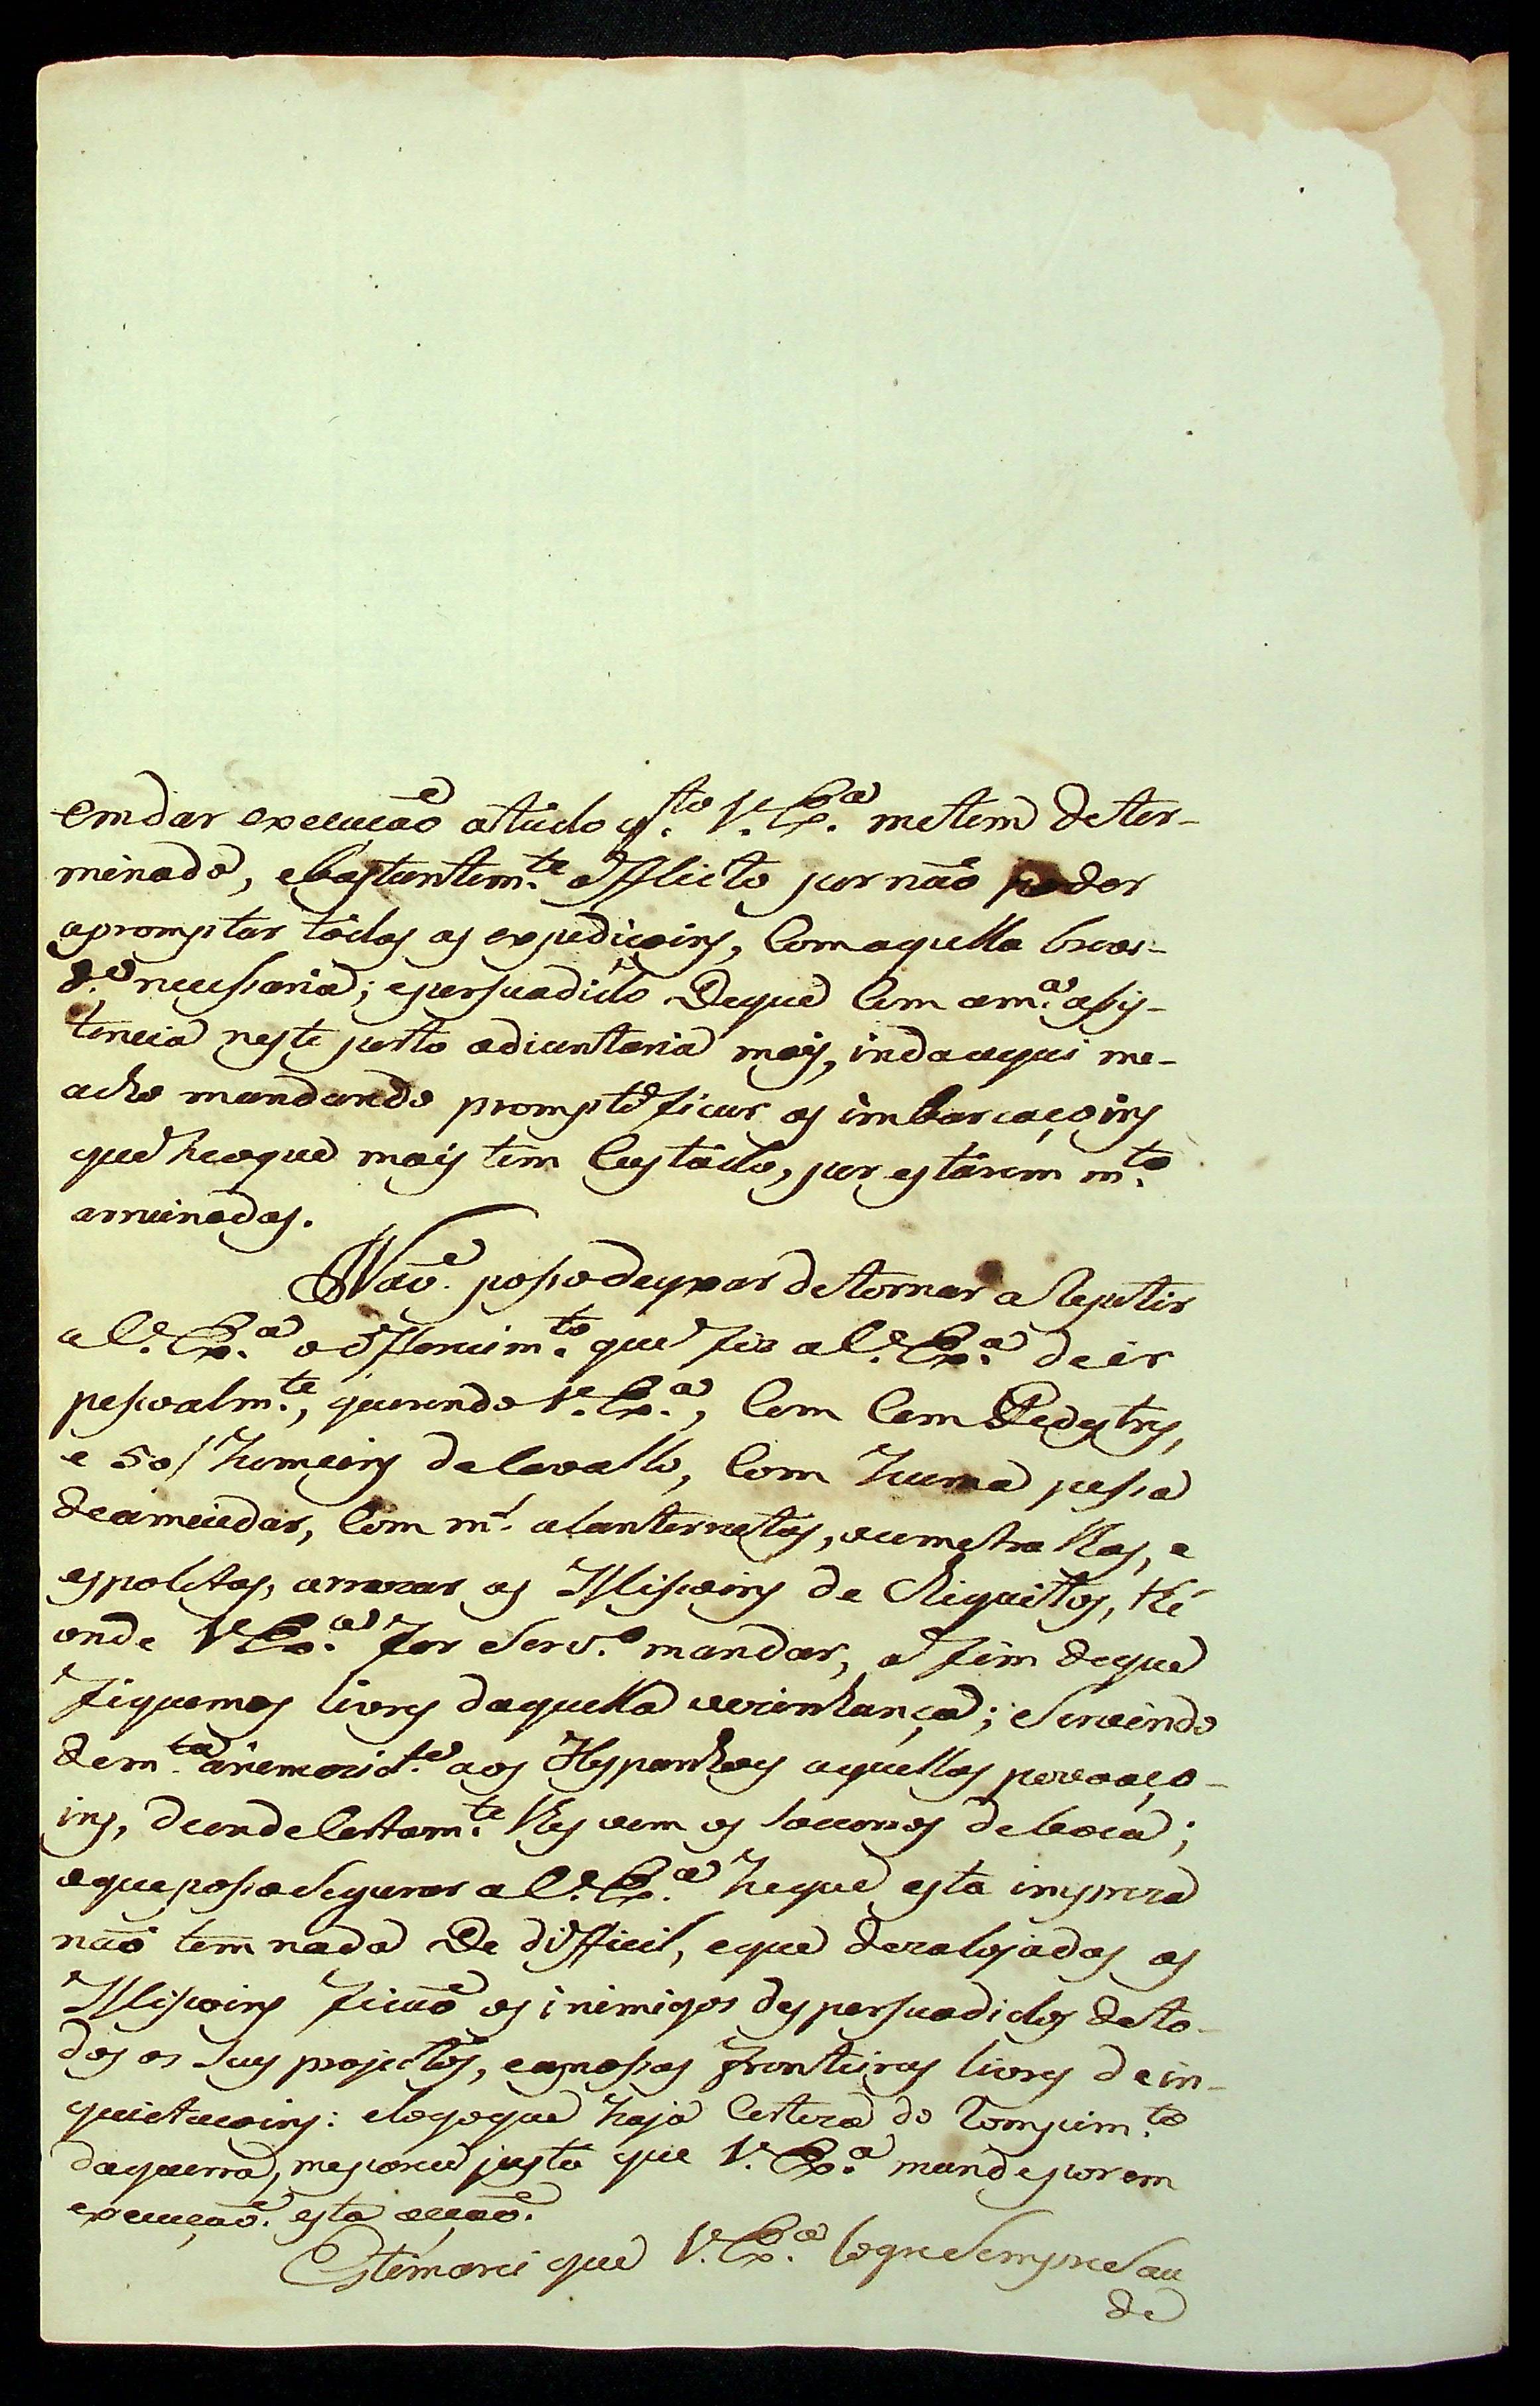 Em dar execucaõ atudo q.to V. Ex.a metem deter-
minado, ebastantem.te afflicto por naõ poder
apromptar todas as expediçoins, Com aquella brevi-
d.e necessaria; epersuadido Deque Com am.a asis-
tencia neste porto adiantaria mais, inda aqui me-
acho mandando promptificar as imbarcaçoins
que he oque mais tem Custado, por estárem m.to
arruinadas.
Naõ posso deyxar detornar a Repetir
a V. Ex.a o offerecim.to que fis a V. Ex.a de ir
pessoalm.te, querendo V. Ex.a, Com Cem Pedestres,
e 50/ homeins de Cavallo, Com huma pessa
de amiudar, Com m.l alanternetas, ou metralhas, e
espoletas, arrazar as Missoins de Chiquitos, the
onde V. Ex.a for Serv.o mandar, a fim deque
fiquemos livres daquella vezinhança; e Servindo
dem.ta aos Hespanhoes aquellas povoaço-
ins, deonde Certam.te lhes vem os Socorros deboca;
oque posso Segurar a V. Ex.a he que esta impreza
naõ tem nada De difficil, eque dezalojadas as
Missoins ficaõ os inimigos despersuadidos deto-
dos os Seus projectos, easnossas fronteiras livres de in-
quietaçoins: elogoque haja Certeza do Rompim.to
daguerra, meparece justo que V. Ex.a mande por em
execuçaõ esta acçaõ.
Estimarei que V. Ex.a logre Sempre Sau
de